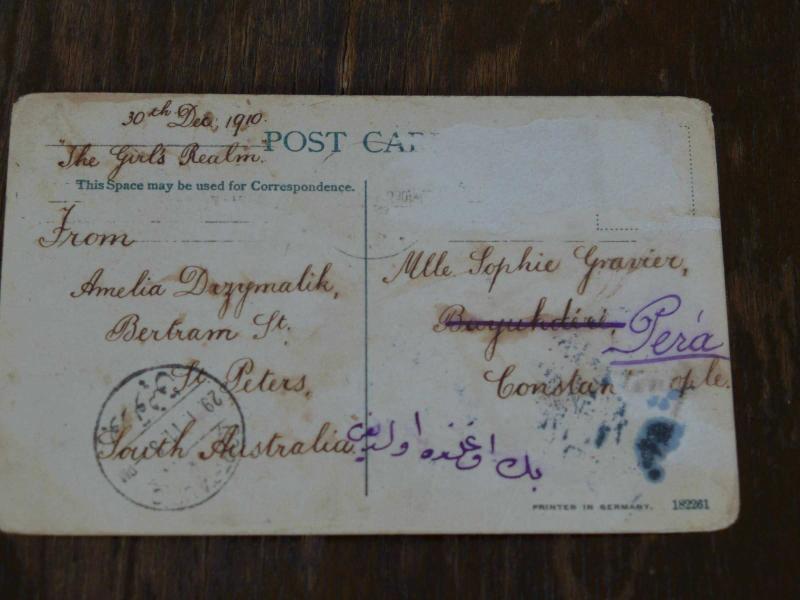 30th Dec, 1910.
POST CAR
The Girl's Realm.
This Space may be used for Correspondence.
From
Amelia Drzymalik,
Bertram St.
St. Peters,
South Australia.
Mlle Sophie Gravier,
Buyukdéré,
Pera
Constantinople.
بك اوغلنده اولديغى
29 1 11
PRINTED IN GERMANY.
182261